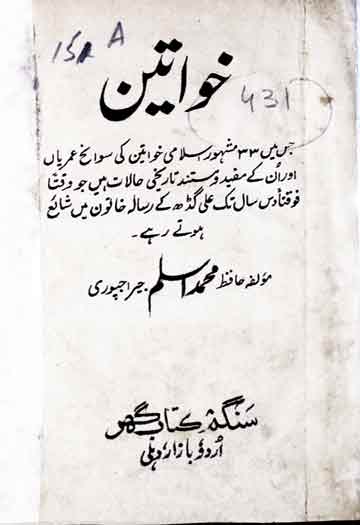 15A A
خواتین
431
جس میں ۳۳ مشہور اسلامی خواتین کی سوانح عمریاں
اور اُن کے مفید و مستند تاریخی حالات ہیں جو وقتاً
فوقتاً دس سال تک علی گڈھ کے رسالہ خاتون میں شائع
ہوتے رہے۔
مؤلفہ حافظ محمد اسلم جیراجپوری
سنگم کتاب گھر
اُردو بازار دہلی